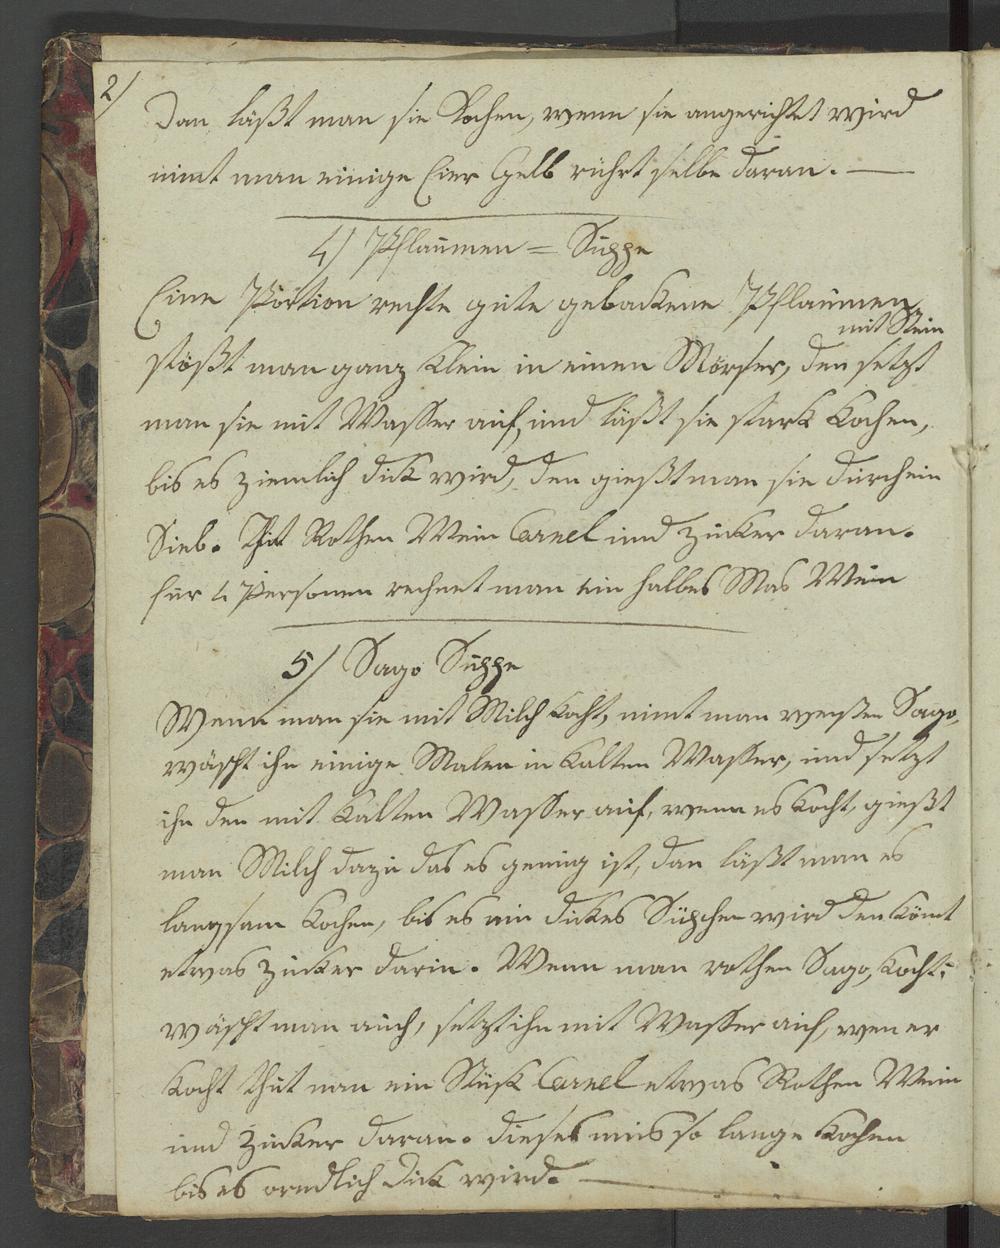 2/
Dan läßt man sie Kochen, wenn sie angerichtet wird
nimt man einige Eier Gelb rührt selbe daran. —
4/ Pflaumen = Suppe
Eine Portion rechte gute gebackene Pflaumen
mit Stein
stößt man ganz klein in einen Mörser, den setzt
man sie mit Wasser auf, und läßt sie stark Kochen,
bis es ziemlich dick wird, den gießt man sie durch ein
Sieb. Thut Rothen Wein Canel und Zucker daran.
für 4 Personen rechnet man ein halbes Mas Wein
5/ Sago Suppe
Wenn man sie mit Milch Kocht, nimt man weisen Sago,
wäscht ihn einige Malen in Kalten Wasser, und setzt
ihn den mit Kalten Wasser auf, wenn es Kocht, gießt
man Milch dazu das es genug ist, dan läßt man es
langsam Kochen, bis es ein dickes Süpchen wird den kömt
etwas Zucker darin. Wenn man rothen Sago, Kocht:
wäscht man auch, setzt ihn mit Wasser auf, wen er
Kocht thut man ein Stück Canel etwas Rothen Wein
und Zucker daran. dieses mus so lange Kochen
bis es orndlich dick wird. —